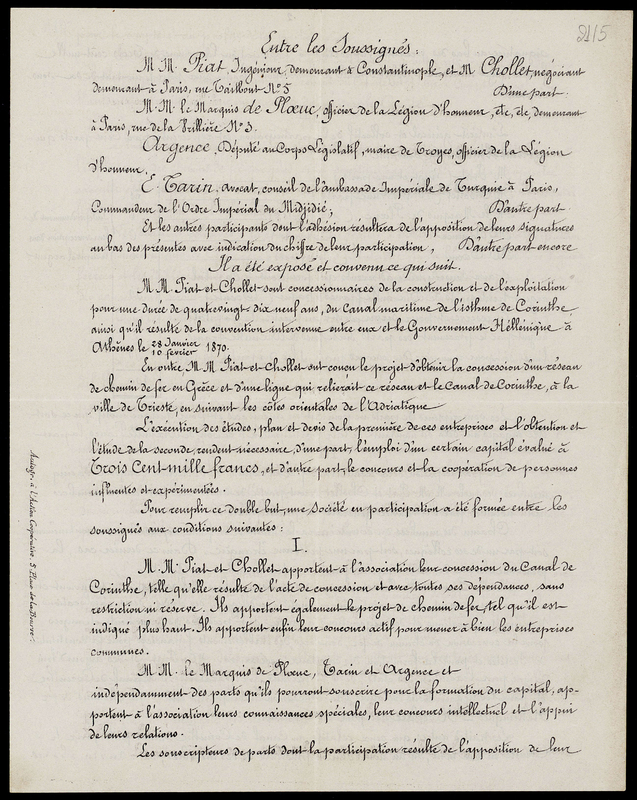 2115
Entre les Soussignés :
M. M. Piat, Ingénieur, demeurant à Constantinople, et M. Chollet, négociant
demeurant à Paris, rue Taitbout N° 5 D'une part.
M. M. le Marquis de Plœuc, officier de la Légion d'honneur, etc, etc, demeurant
à Paris, rue de la Vrillière N° 3.
Argence, Député au Corps Législatif, maire de Troyes, officier de la Légion
d'honneur.
E. Tarin, avocat, conseil de l'ambassade Impériale de Turquie à Paris,
Commandeur de l'Ordre Impérial du Midjidié ; D'autre part.
Et les autres participants dont l'adhésion résultera de l'apposition de leurs signatures
au bas des présentes avec indication du chiffre de leur participation, D'autre part encore
Il a été exposé et convenu ce qui suit.
M. M. Piat et Chollet sont concessionnaires de la construction et de l'exploitation
pour une durée de quatrevingt-dix neuf ans, du Canal maritime de l'isthme de Corinthe
ainsi qu'il résulte de la convention intervenue entre eux et le Gouvernement Héllénique à
Athènes le 28 Janvier / 10 février 1870.
En outre, M. M. Piat et Chollet ont conçu le projet d'obtenir la concession d'un réseau
de chemin de fer en Grèce et d'une ligne qui relierait ce réseau et le Canal de Corinthe, à la
ville de Trieste, en suivant les côtes orientales de l'Adriatique
L'exécution des études, plan et devis de la première de ces entreprises et l'obtention et
l'étude de la seconde, rendent nécessaire, d'une part, l'emploi d'un certain capital évalué à
Trois Cent mille francs, et d'autre part, le concours et la coopération de personnes
influentes et expérimentées.
Pour remplir ce double but, une Société en participation a été formée entre les
soussignés aux conditions suivantes :
I.
M. M. Piat et Chollet apportent à l'association leur concession du Canal de
Corinthe, telle qu'elle résulte de l'acte de concession et avec toutes ses dépendances, sans
restriction ni réserve. Ils apportent également le projet de chemin de fer, tel qu'il est
indiqué plus haut. Ils apportent enfin leur concours actif pour mener à bien les entreprises
communes.
M. M. le Marquis de Plœuc, Tarin et Argence et
indépendamment des parts qu'ils pourront souscrire pour la formation du capital, ap-
portent à l'association leurs connaissances spéciales, leur concours intellectuel et l'appui
de leurs relations.
Les souscripteurs de parts dont la participation résulte de l'apposition de leur